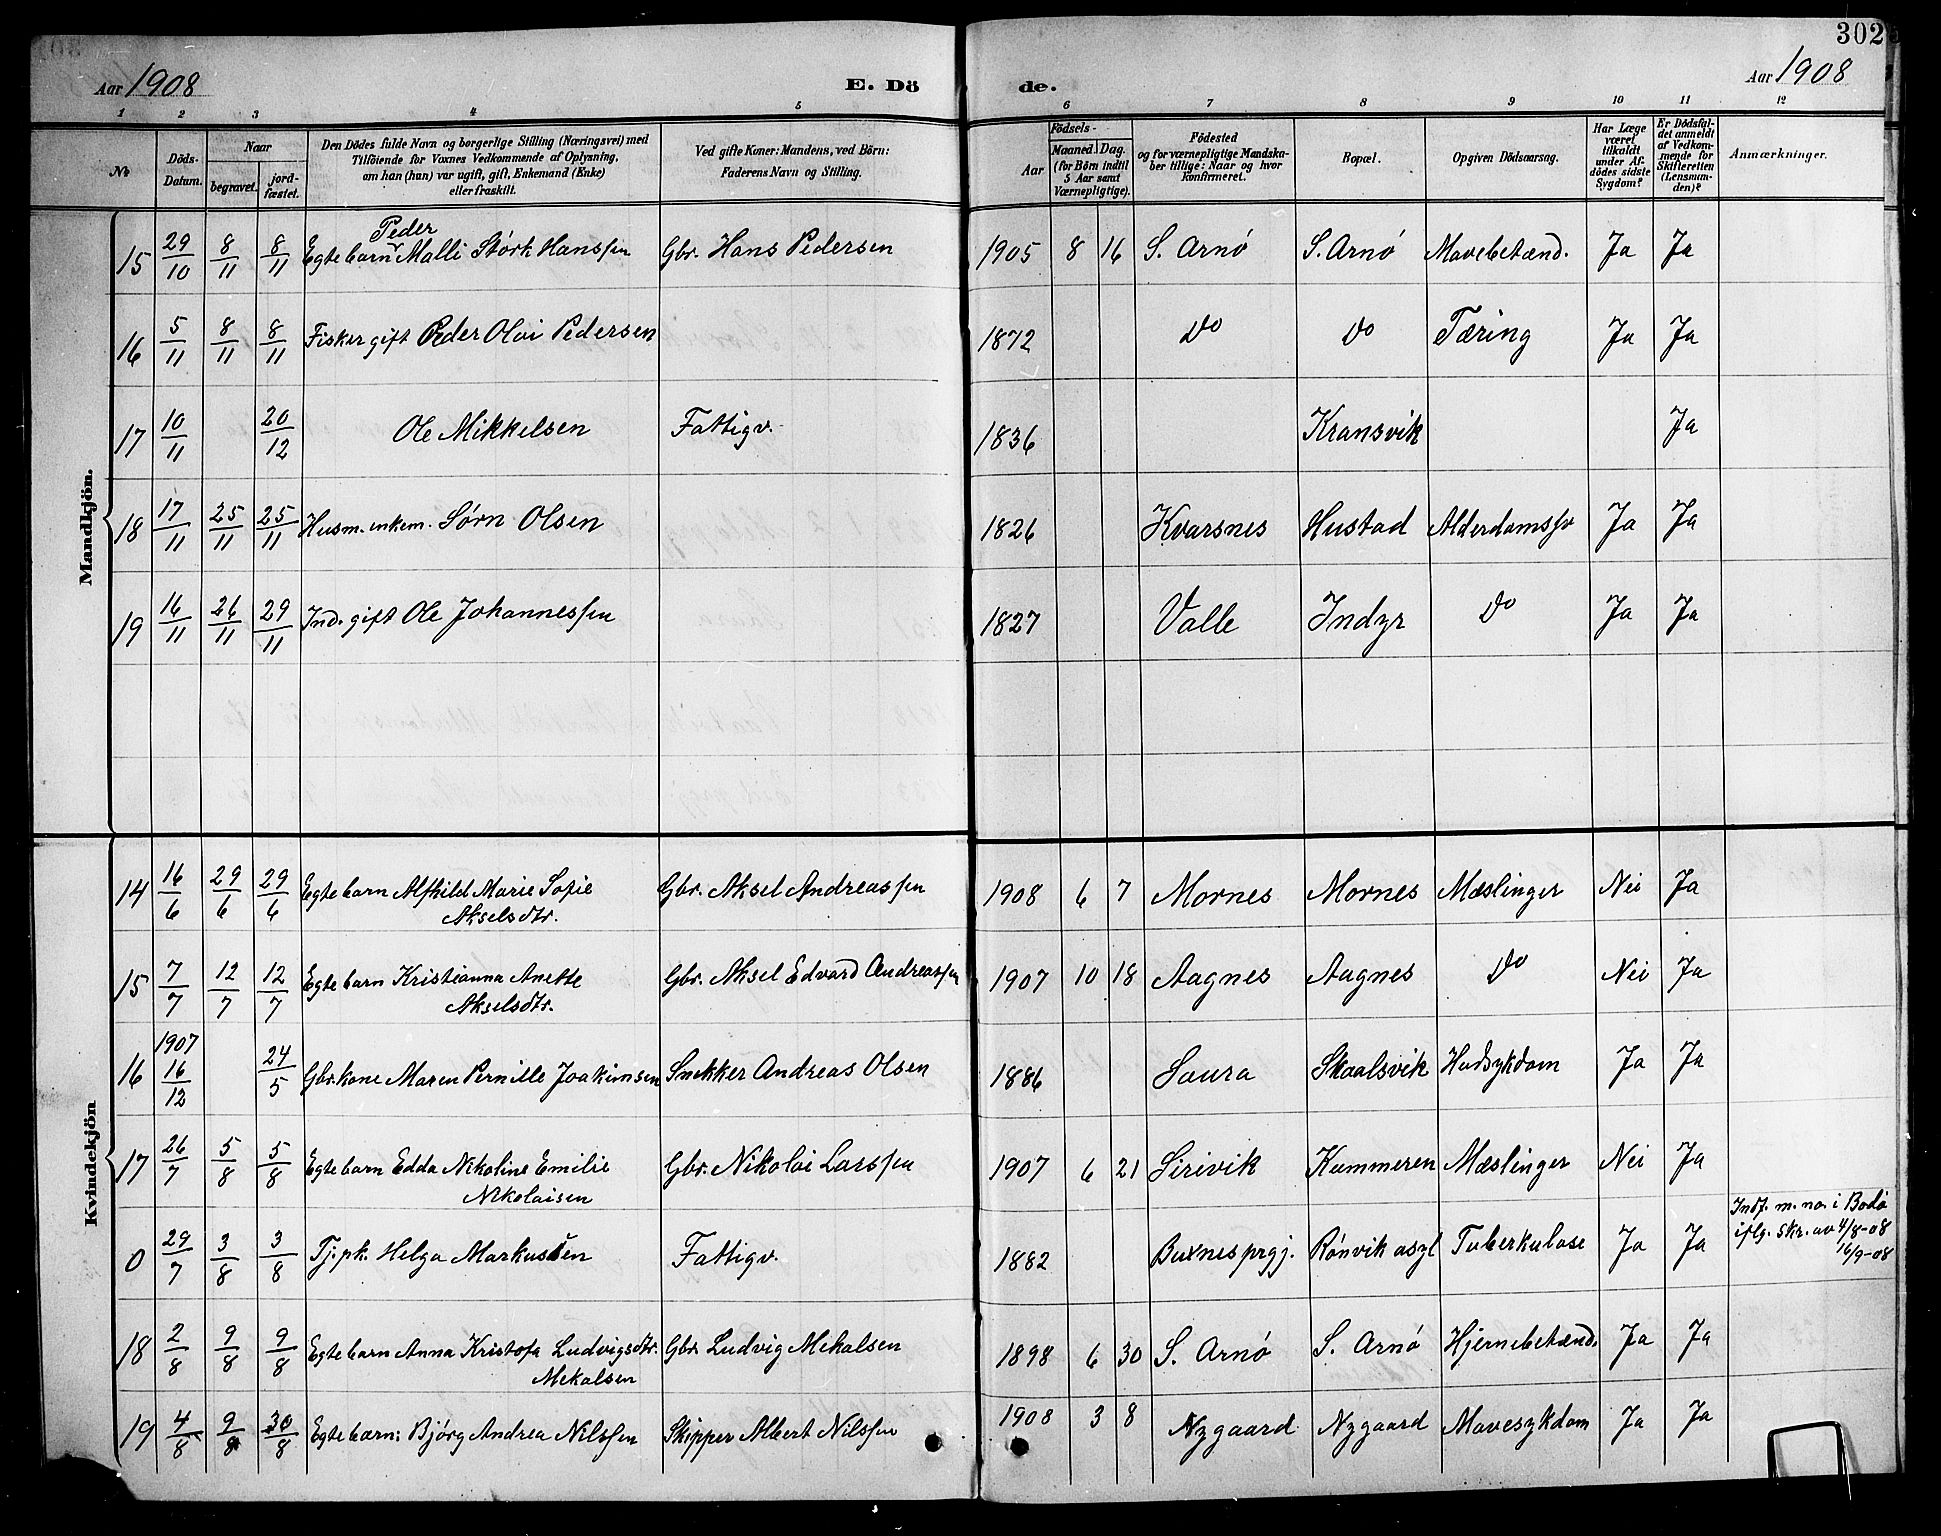 302
Aar 1908 E. Dö de. Aar 1908
1 2 3 4 5 6 7 8 9 10 11 12
№ | Döds-Datum. | Naar begravet. | jordfæstet. | Den Dödes fulde Navn og borgerlige Stilling (Næringsvei) med Tilföiende for Voxnes Vedkommende af Oplysning, om han (hun) var ugift, gift, Enkemand (Enke) eller fraskilt. | Ved gifte Koner: Mandens, ved Börn: Faderens Navn og Stilling. | Aar | Födsels- Maaned. Dag. (for Börn indtil 5 Aar samt Værnepligtige). | Födested og for værnepligtige Mandskaber tillige: Naar og hvor konfirmeret. | Bopæl. | Opgiven Dödsaarsag. | Har Læge været tilkaldt under Afdödes sidste Sygdom? | Er Dödsfaldet anmeldt af Vedkommende for Skifteretten (Lensmanden)? | Anmærkninger.
Mandkjön.
Peder
15 29/10 8/11 8/11 Egte barn Malli Störk Hanssen Gbr. Hans Pedersen 1905 8 16 S. Arnö S. Arnö Mavebetænd. Ja Ja
16 5/11 8/11 8/11 Fisker gift Peder Olai Pedersen 1872 Do Do Tæring Ja Ja
17 10/11 20/12 Ole Mikkelsen Fattigv. 1836 Kransvik Ja
18 17/11 25/11 25/11 Husm. enkem. Sørn Olsen 1826 Kvarsnes Hustad Alderdomssv Ja Ja
19 16/11 26/11 29/11 Ind. gift Ole Johannessen 1827 Valle Indyr Do Ja Ja
Kvindekjön
14 16/6 29/6 29/6 Egte barn Alfhild Marie Sofie Gbr. Aksel Andreassen 1908 6 7 Mornes Mornes Mæslinger Nei Ja
Akselsdtr.
15 7/7 12/7 12/7 Egte barn Kristianna Anette Gbr. Aksel Edvard Andreassen 1907 10 18 Aagnes Aagnes Do Nei Ja
Akselsdtr.
1907
16 16/12 24/5 Gbr.kone Maren Pernille Joakimsen Snekker Andreas Olsen 1886 Saura Skaalsvik Hudsykdom Ja Ja
17 26/7 5/8 5/8 Egte barn Edda Nikoline Emilie Gbr. Nikolai Larssen 1907 6 21 Sirivik Kummeren Mæslinger Nei Ja
Nikolaisen
0 29/7 3/8 3/8 Tj.pk. Helga Markussen Fattigv. 1882 Buxnes prgj. Rönvik asyl Tuberkulose Ja Ja Indf. m. no. i Bodö
iflg. skr. av 4/8-08
16/9-08
18 2/8 9/8 9/8 Egte barn Anna Kristofa Ludvigsdtr. Gbr. Ludvig Mekalsen 1898 6 30 S. Arnö S. Arnö Hjernebetænd. Ja Ja
Mekalsen
19 4/8 9/8 30/8 Egte barn: Bjørg Andrea Nilssen Skipper Albert Nilssen 1908 3 8 Nygaard Nygaard Mavesykdom Ja Ja